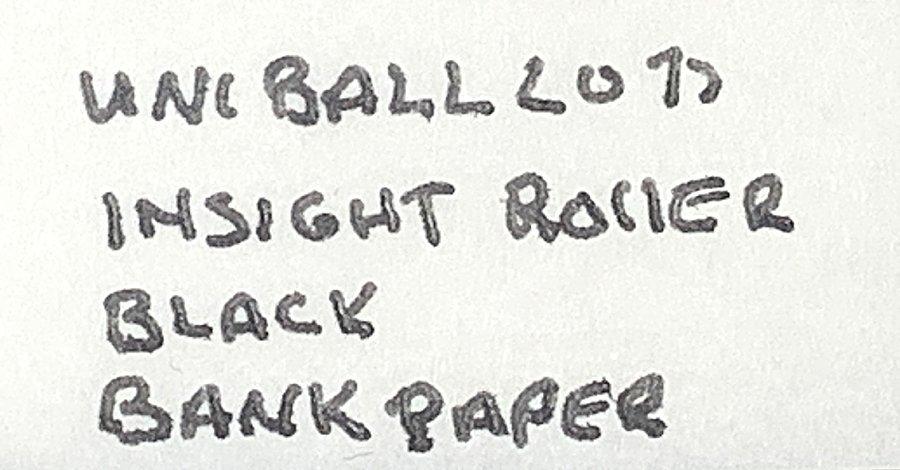 UNI BALL
INSIGHT ROLLER
BLACK
BANK PAPER